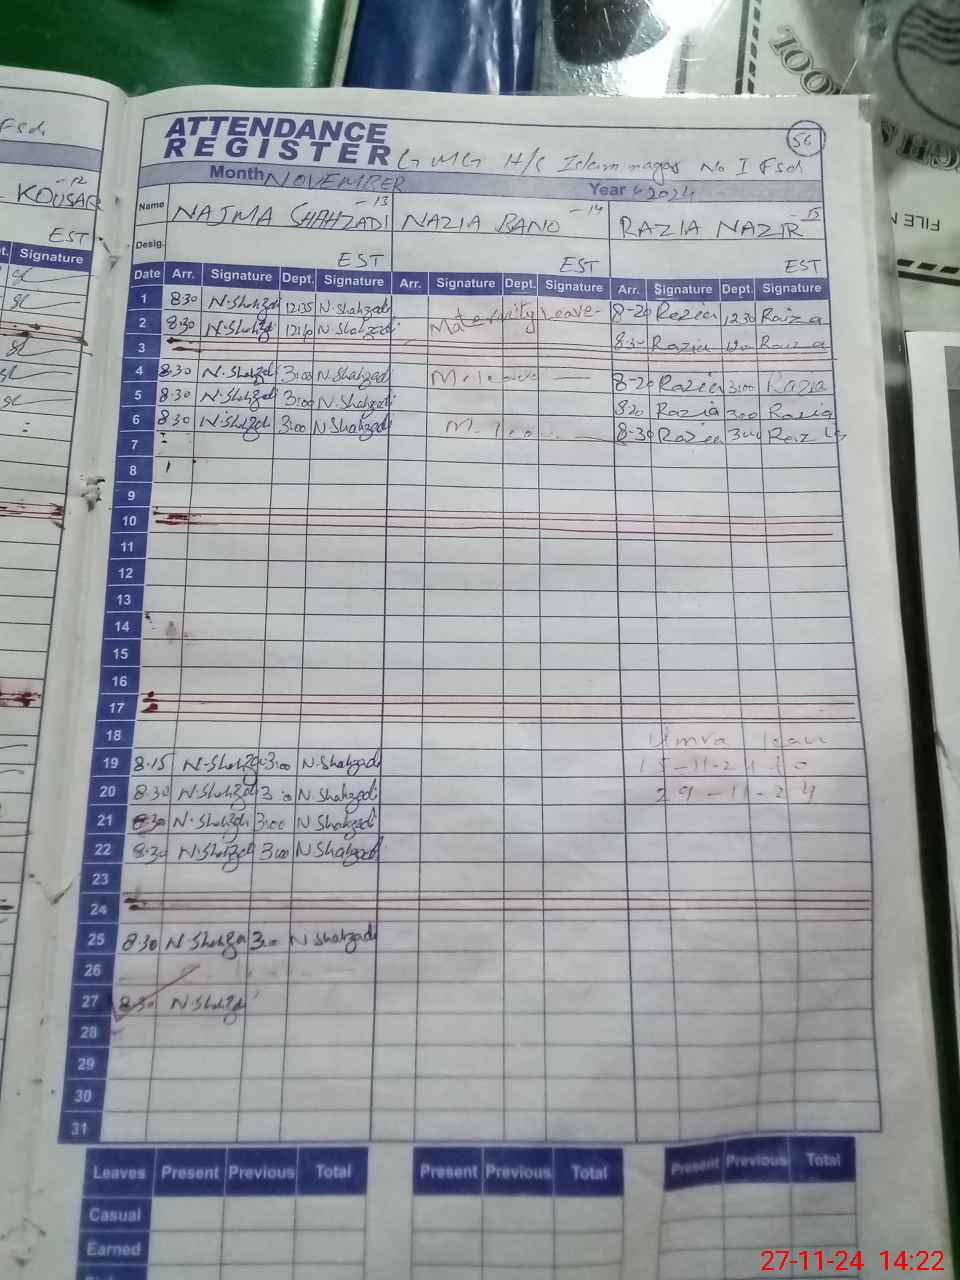 ATTENDANCE
REGISTER GMG H/S Islam nagar No I Fsd
56
Fsd
Month NOVEMBER Year 2024
KOUSAR -12
Name NAJMA SHAHZADI -13 NAZIA BANO -14 RAZIA NAZIR -15
Desig. EST EST EST
EST
Signature
Date Arr. Signature Dept. Signature Arr. Signature Dept. Signature Arr. Signature Dept. Signature
1 8:30 N.Shahzadi 12:35 N.Shahzadi Maternity Leave 8-20 Razia 12:30 Razia
2 8:30 N.Shahzadi N.Shahzadi
3 8:30 Razia Razia
4 8:30 N.Shahzadi 3:00 N.Shahzadi M.leave 8-20 Razia 3:00 Razia
5 8:30 N.Shahzadi 3:00 N.Shahzadi 8:20 Razia 3:00 Razia
6 8:30 N.Shahzadi 3:00 N.Shahzadi M.leave 8-30 Razia 3:00 Razia
7
8
9
10
11
12
13
14
15
16
17
18 Umra leave
19 8.15 N-Shahzadi 3:00 N.Shahzadi 15-11-24 to
20 8:30 N.Shahzadi 3:00 N.Shahzadi 29-11-24
21 8:30 N.Shahzadi 3:00 N.Shahzadi
22 8:30 N.Shahzadi 3:00 N.Shahzadi
23
24
25 8:30 N.Shahzadi 3:00 N Shahzadi
26
27 8:30 N.Shahzadi
28
29
30
31
Leaves Present Previous Total Present Previous Total Present Previous Total
Casual
Earned
27-11-24 14:22